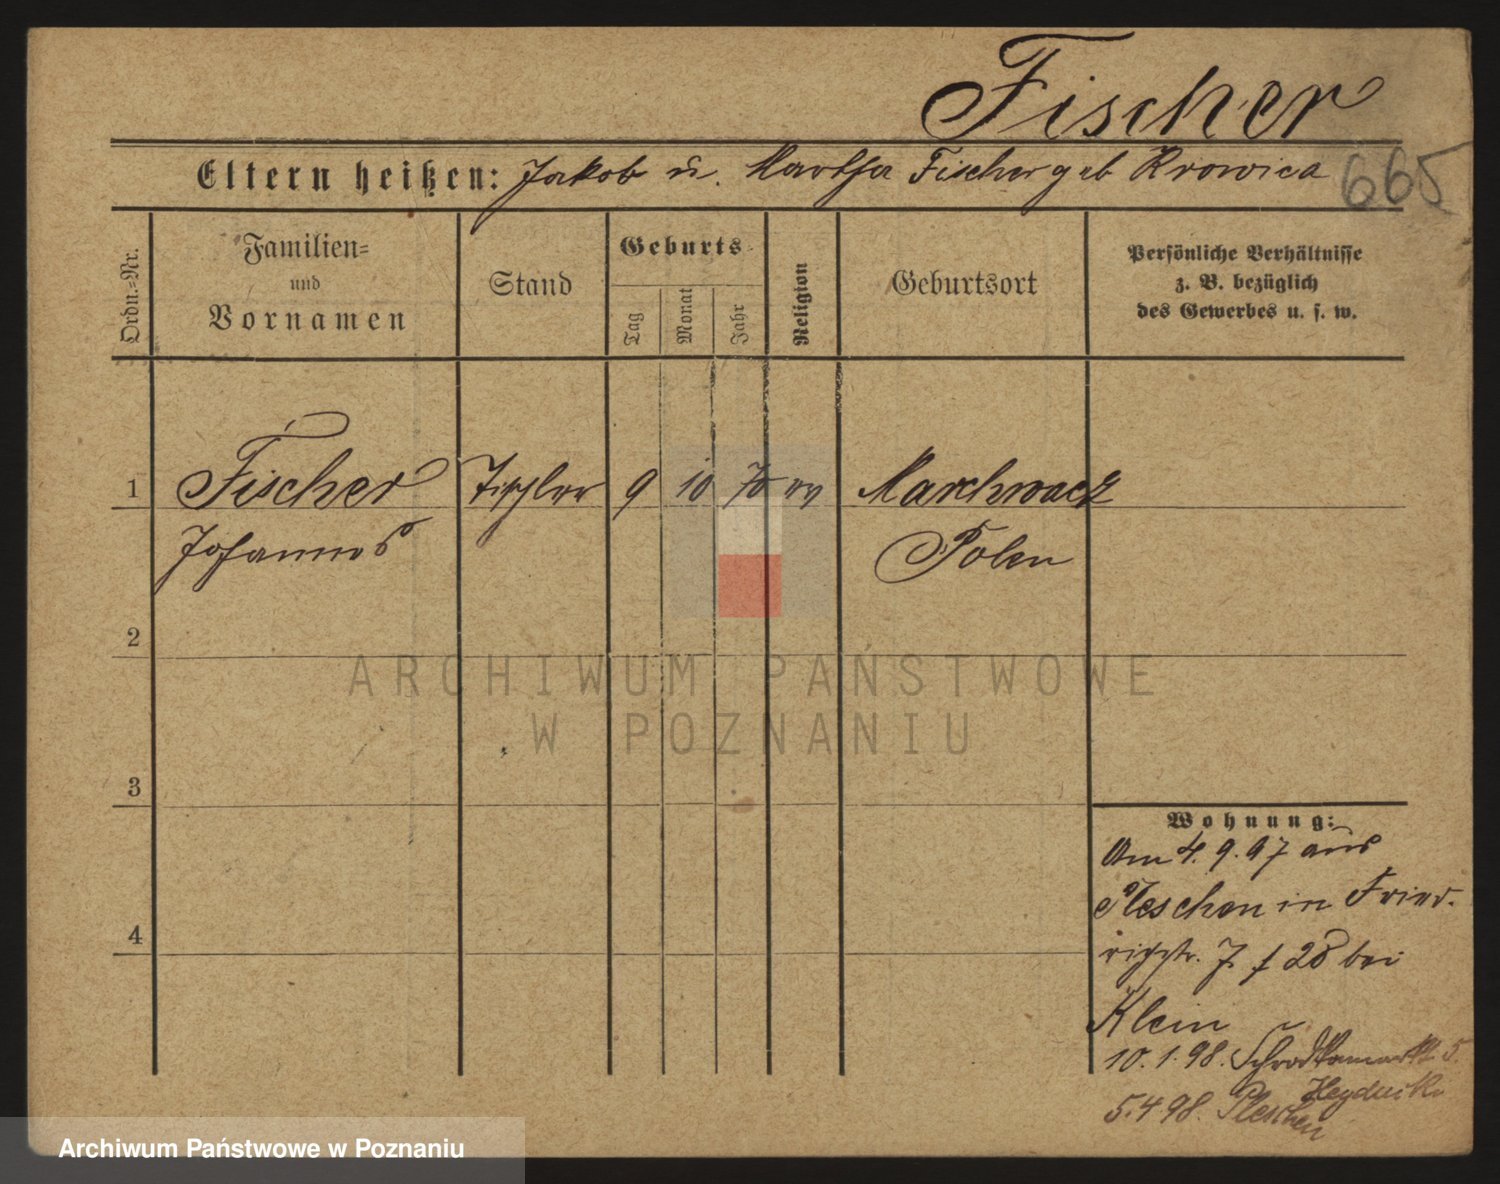 Fischer
Eltern heißen: Jakob u. Martha Fischer geb Krowica
665
Ordn.-Nr.
Familien-
und
Vornamen
Stand
Geburts-
Tag
Monat
Jahr
Religion
Geburtsort
Persönliche Verhältnisse
z. B. bezüglich
des Gewerbes u. s. w.
1
Fischer
Ziegler
9
10
70
ev
Marchwacz
Johannes
Polen
2
ARCHIWUM PAŃSTWOWE
W POZNANIU
3
Wohnung:
Am 4. 9. 97 aus
Pleschen in Fried-
richstr. 28 bei
4
Klein
10. 1. 98. Schrodkamarkt 5.
Heyduck
5. 4 98. Pleschen
Archiwum Państwowe w Poznaniu